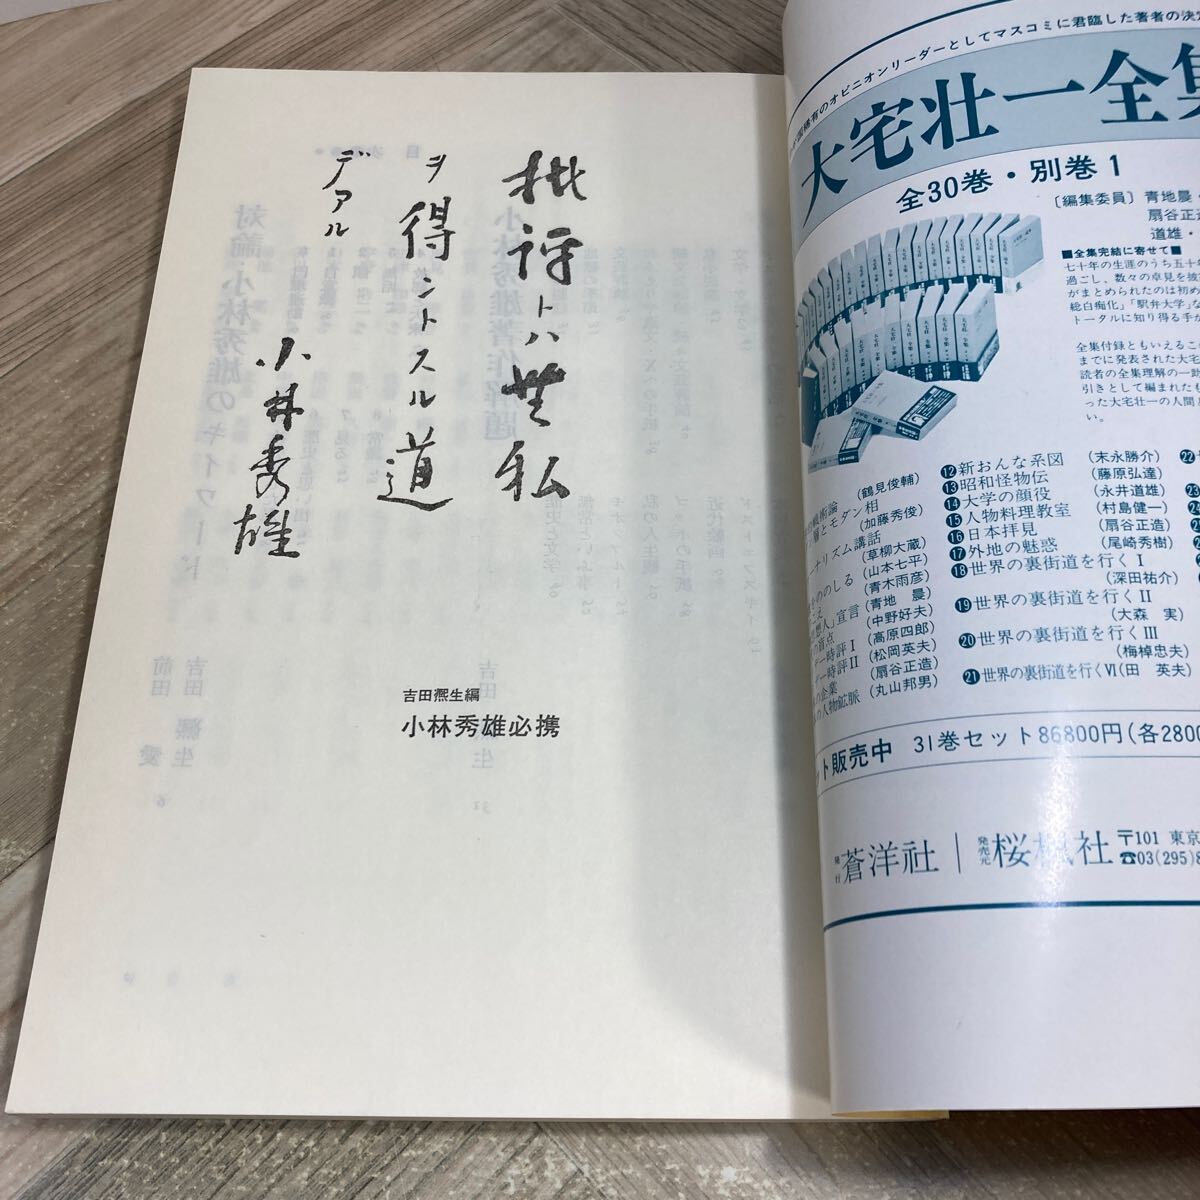 批評トハ無私
ヲ得ントスル道
デアル
小林秀雄
吉田凞生編
小林秀雄必携
稀有のオピニオンリーダーとしてマスコミに君臨した著者の決定
大宅壮一全集
全30巻・別巻1
〔編集委員〕青地晨・
扇谷正造
道雄・
■全集完結に寄せて■
七十年の生涯のうち五十年
過ごし、数々の卓見を披
がまとめられたのは初め
総白痴化」「駅弁大学」な
トータルに知り得る手が
全集付録ともいえるこ
までに発表された大宅
読者の全集理解の一助
引きとして編まれたも
った大宅壮一の人間
い。
(鶴見俊輔)
層とモダン相
(加藤秀俊)
ーナリズム講話
(草柳大蔵)
(山本七平)
(青木雨彦)
(青地 晨)
(中野好夫)
(高原四郎)
(松岡英夫)
(扇谷正造)
(丸山邦男)
⑫新おんな系図 (末永勝介)
⑬昭和怪物伝 (藤原弘達)
⑭大学の顔役 (永井道雄)
⑮人物料理教室 (村島健一)
⑯日本拝見 (扇谷正造)
⑰外地の魅惑 (尾崎秀樹)
⑱世界の裏街道を行くI
(深田祐介)
⑲世界の裏街道を行くII
(大森 実)
⑳世界の裏街道を行くIII
(梅棹忠夫)
㉑世界の裏街道を行くVI(田 英夫)
ト販売中 31巻セット86800円(各2800
発行 蒼洋社 | 発売元 桜楓社 〒101 東京
☎03(295)8